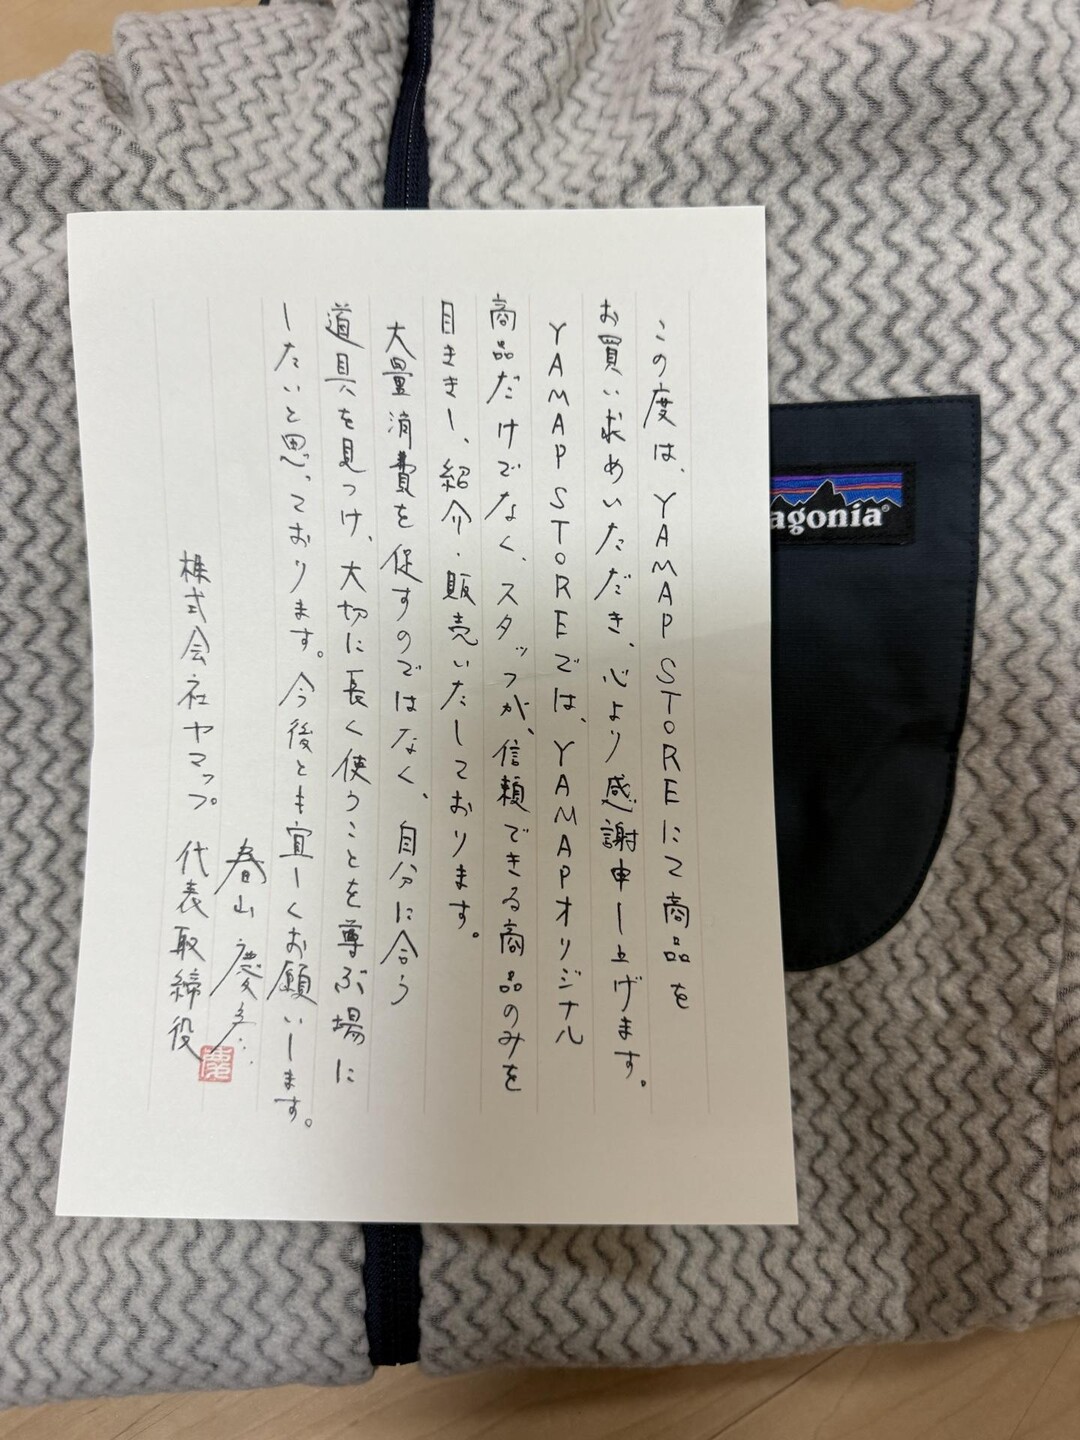 この度は、YAMAP STOREにて商品を
お買い求めいただき、心より感謝申し上げます。
YAMAP STOREでは、YAMAPオリジナル
商品だけでなく、スタッフが、信頼できる商品のみを
目ききし、紹介・販売いたしております。
大量消費を促すのではなく、自分に合う
道具を見つけ、大切に長く使うことを尊ぶ場に
したいと思っております。今後とも宜しくお願いします。
株式会社ヤマップ 代表取締役
春山慶彦
agonia®